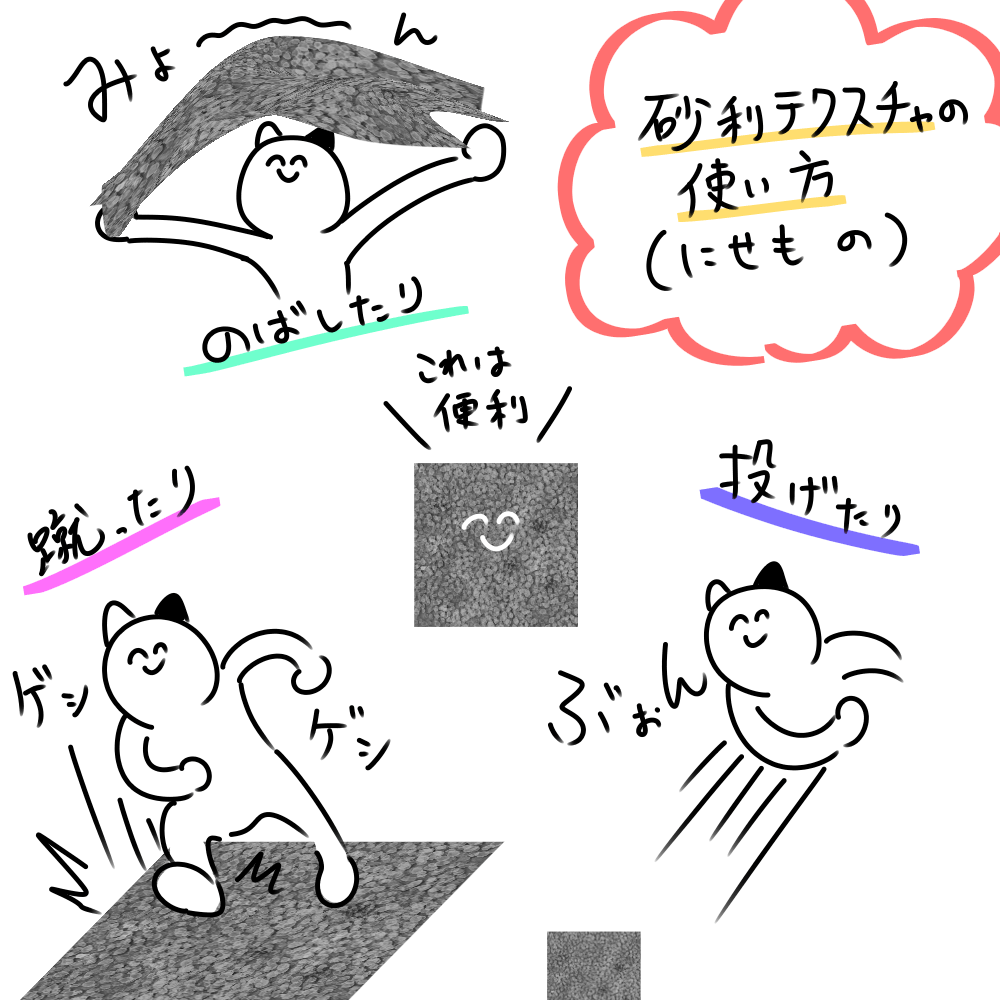 みょ〜〜ん
砂利テクスチャの
使い方
(にせもの)
のばしたり
これは
便利
蹴ったり
投げたり
ゲシ
ゲシ
ぶぉん